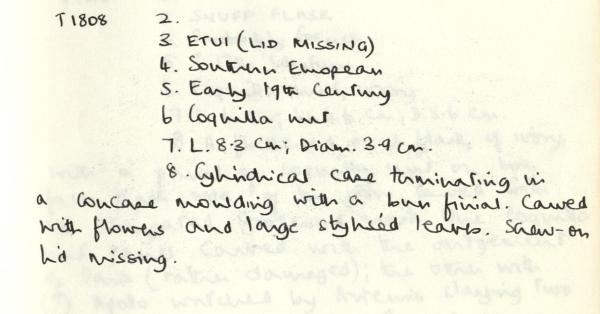 T1808 2.
3. ETUI (LID MISSING)
4. Southern European
5. Early 19th Century
6 Coquilla nut
7. L: 8.3 cm; Diam. 3.9 cm.
8. Cylindrical case terminating in
a concave moulding with a bun finial. Carved
with flowers and large stylised leaves. Screw-on
lid missing.